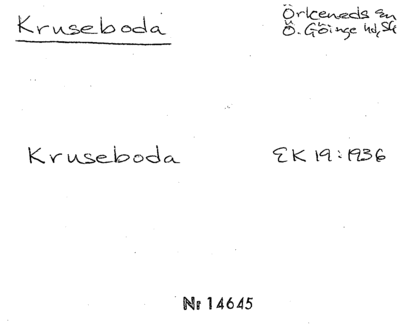 Kruseboda
Örkeneds sn
Ö. Göinge hd, Sk
Kruseboda
EK 19:1936
Nr 14645